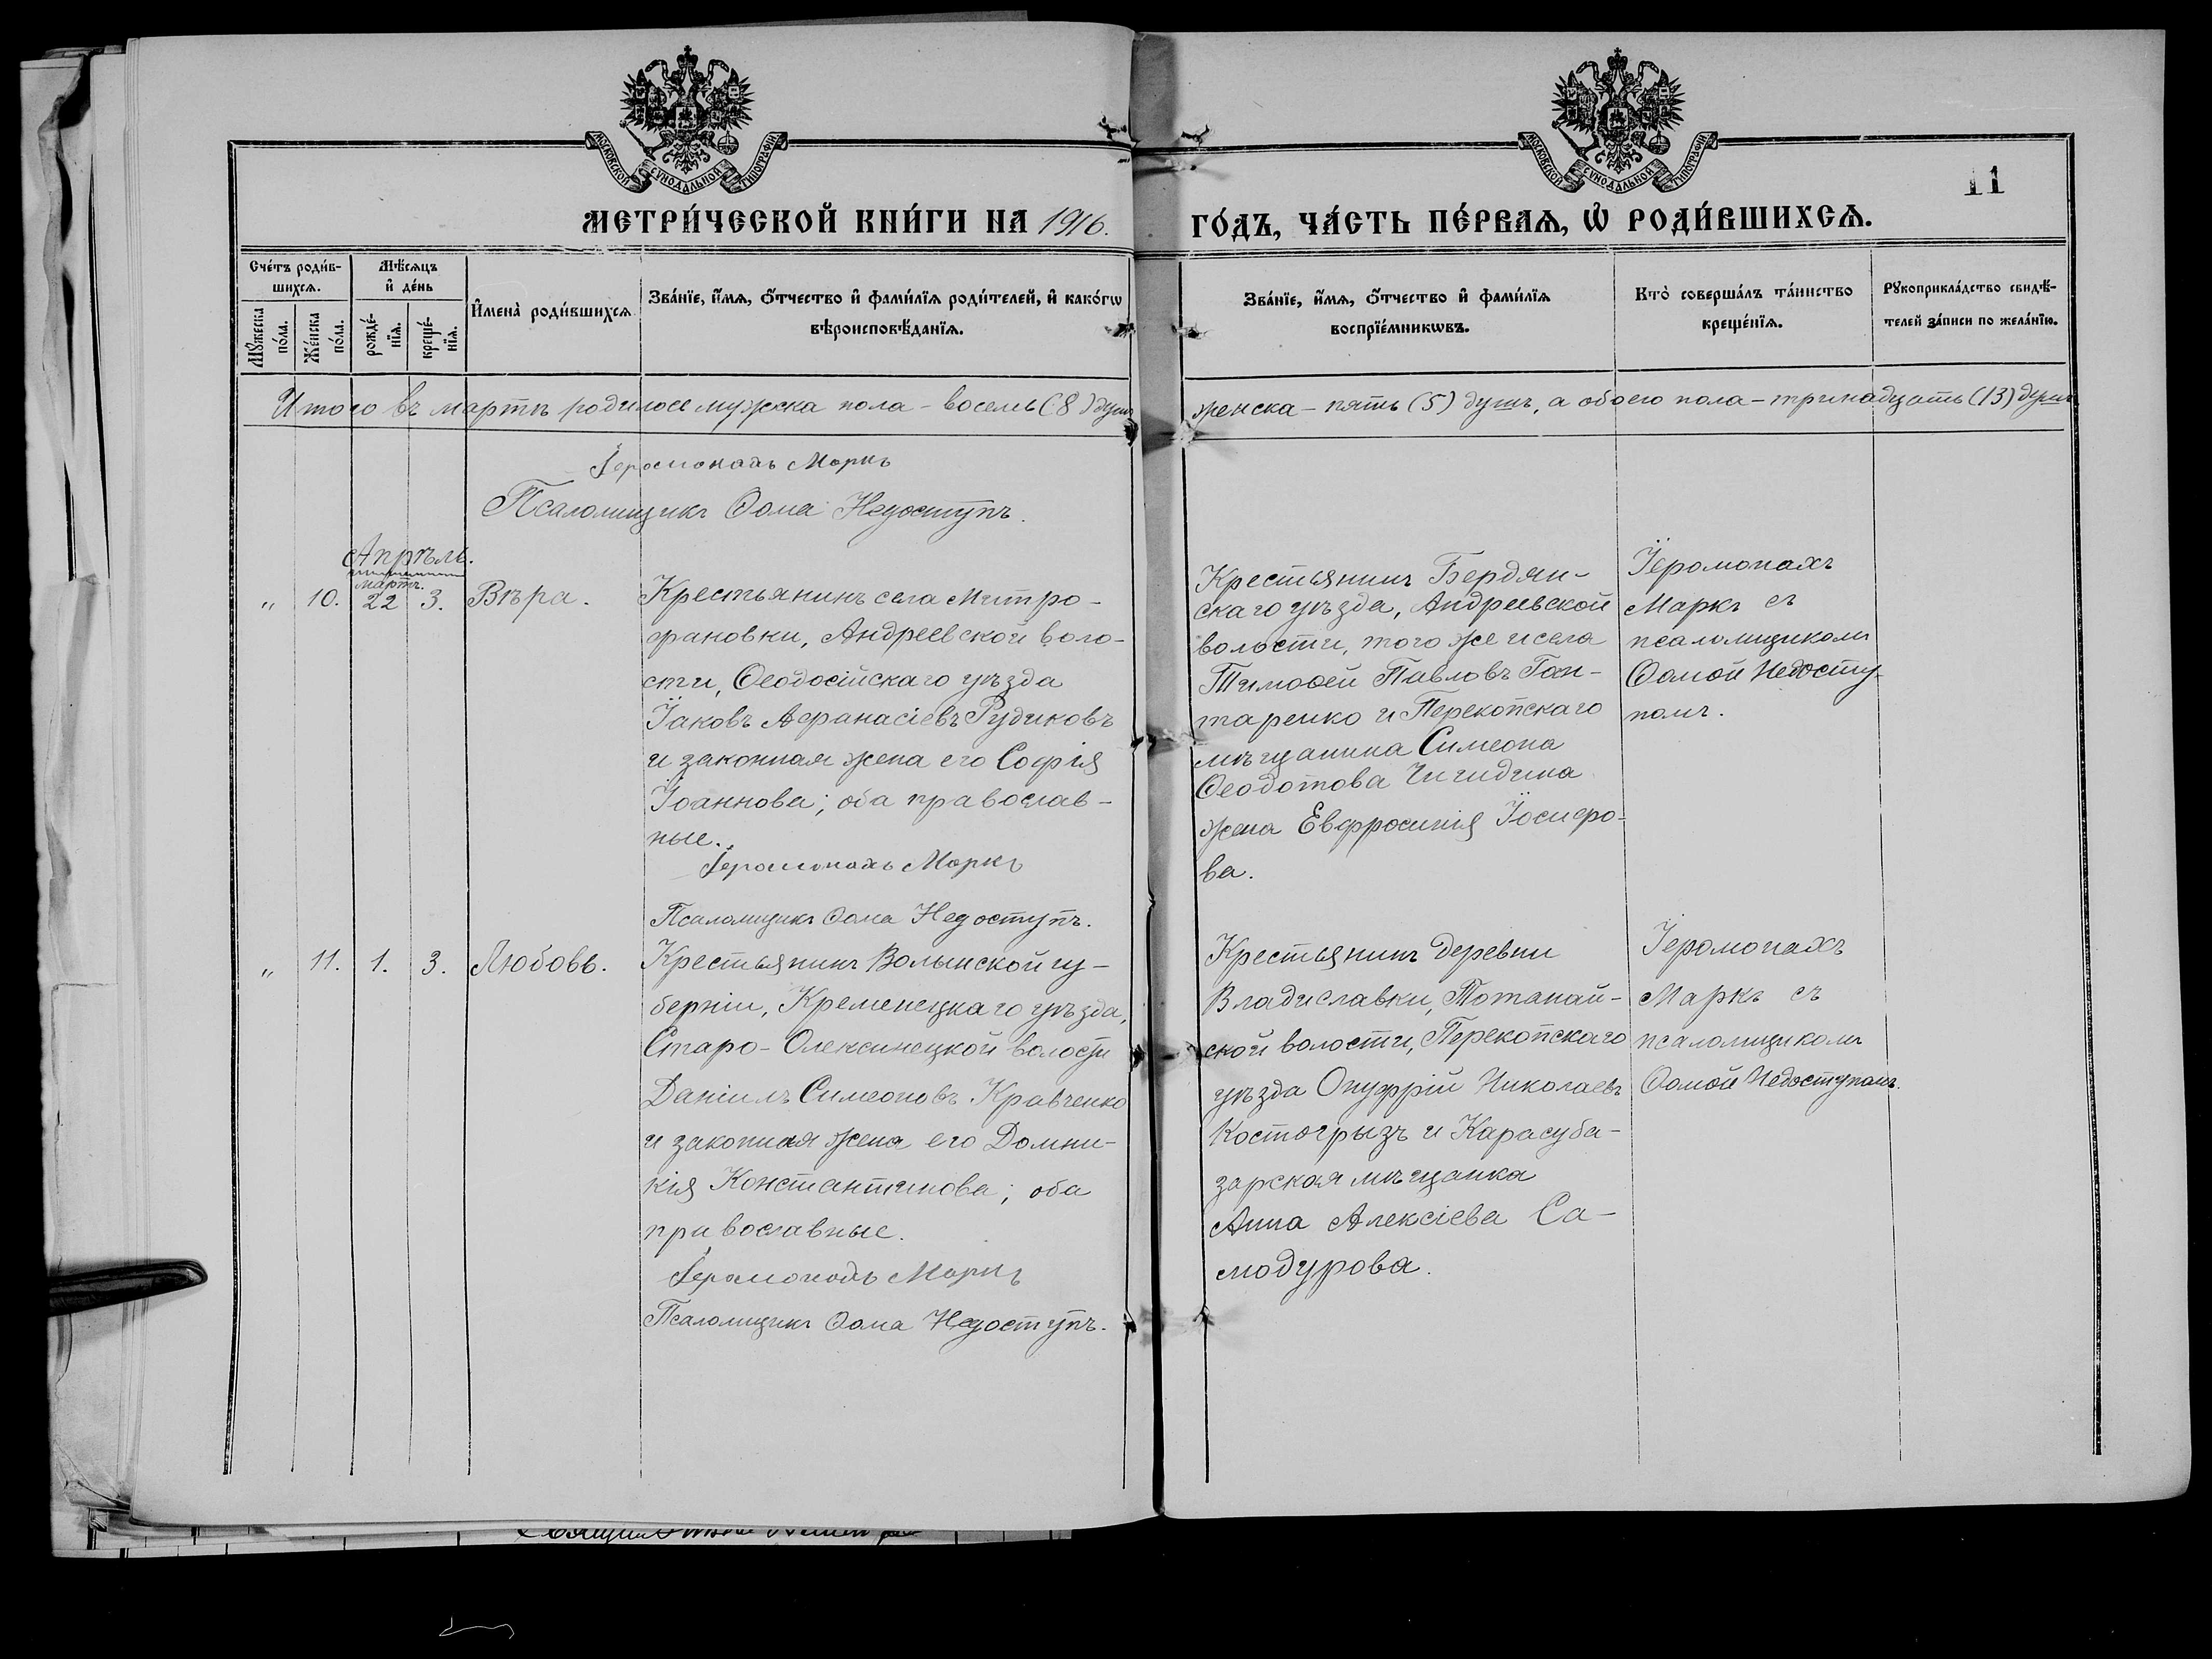 МОСКОВСКОЙ СѴНОДАЛЬНОЙ ТИПОГРАФІИ
МОСКОВСКОЙ СѴНОДАЛЬНОЙ ТИПОГРАФІИ
11
МЕТРИ́ЧЕСКОЙ КНИ́ГИ НА 1916. ГО́ДЪ, ЧА́СТЬ ПЕ́РВАѦ, Ѡ҆ РОДИ́ВШИХСѦ.
Сче́тъ роди́в-
шихсѧ.
Мꙋ́жеска
по́ла.
Же́нска
по́ла.
Мѣ́сѧцъ
и҆ де́нь
рожде́-
нїѧ.
креще́-
нїѧ.
И҆мена̀ роди́вшихсѧ
Зва́нїе, и҆́мѧ, ѻ҆́тчество и҆ фами́лїѧ роди́телей, и҆ како́гѡ
вѣроисповѣ́данїѧ.
Зва́нїе, и҆́мѧ, ѻ҆́тчество и҆ фами́лїѧ
воспрїе́мникѡвъ.
Кто̀ соверша́лъ та́инство
креще́нїѧ.
Рꙋкоприкла́дство свидѣ́-
телей за́писи по жела́нїю.
Итого въ мартѣ родилось мужска пола - восемь (8) душъ, женска - пять (5) душъ, а обоего пола - тринадцать (13) душъ
Іеромонахъ Маркъ
Псаломщикъ Ѳома Недоступъ.
Апрѣль.
мартъ.
„ 10. 22 3. Вѣра.
Крестьянинъ села Митро-
фановки, Андреевской воло-
сти, Ѳеодосійскаго уѣзда
Іаковъ Аѳанасіевъ Рудиковъ
и законная жена его Софія
Іоаннова; оба православ-
ные.
Іеромонахъ Маркъ
Псаломщикъ Ѳома Недоступъ.
Крестьянинъ Бердян-
скаго уѣзда, Андреевской
волости, того же и села
Тимоѳей Павловъ Ган-
таренко и Перекопскаго
мѣщанина Симеона
Ѳеодотова Чигидина
жена Евфросинія Іосифо-
ва.
Іеромонахъ
Маркъ съ
псаломщикомъ
Ѳомой Недосту-
помъ.
„ 11. 1. 3. Любовь.
Крестьянинъ Волынской гу-
берніи, Кременецкаго уѣзда,
Старо-Олексинецкой волости
Даніилъ Симеоновъ Кравченко
и законная жена его Домни-
кія Константинова; оба
православные.
Іеромонахъ Маркъ
Псаломщикъ Ѳома Недоступъ.
Крестьянинъ деревни
Владиславки, Тотанай-
ской волости, Перекопскаго
уѣзда Онуфрій Николаевъ
Костогрызъ и Карасуба-
зарская мѣщанка
Анна Алексіева Са-
модурова.
Іеромонахъ
Маркъ съ
псаломщикомъ
Ѳомой Недоступомъ.